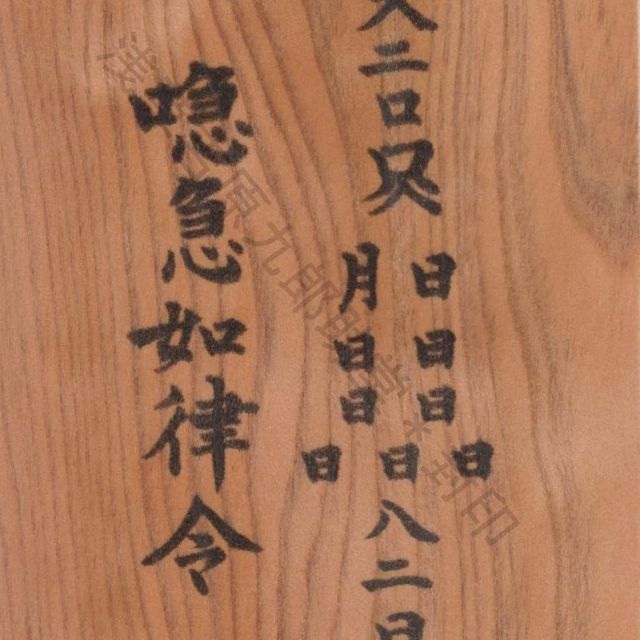 二口尺
日日日
月日日
日日日
八二日
噫急如律令
原九郎
封印